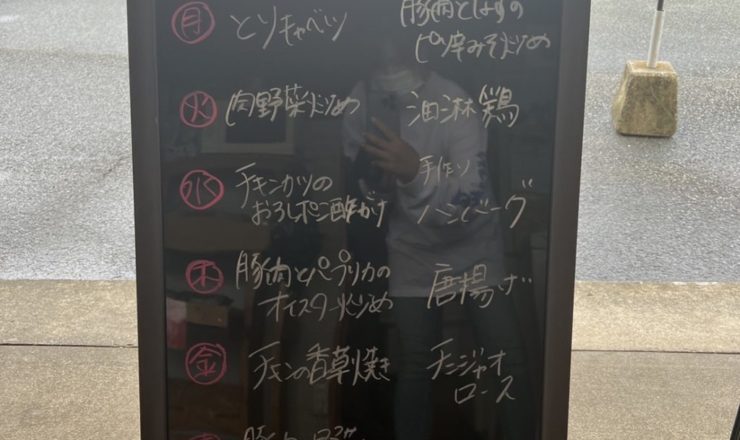 月 とりキャベツ 豚肉となすの
ピリ辛みそ炒め
火 肉野菜炒め 油淋鶏
水 チキンカツの
おろしポン酢がけ
手作り
ハンバーグ
木 豚肉とパプリカの
オイスター炒め
唐揚げ
金 チキンの香草焼き
チンジャオ
ロース